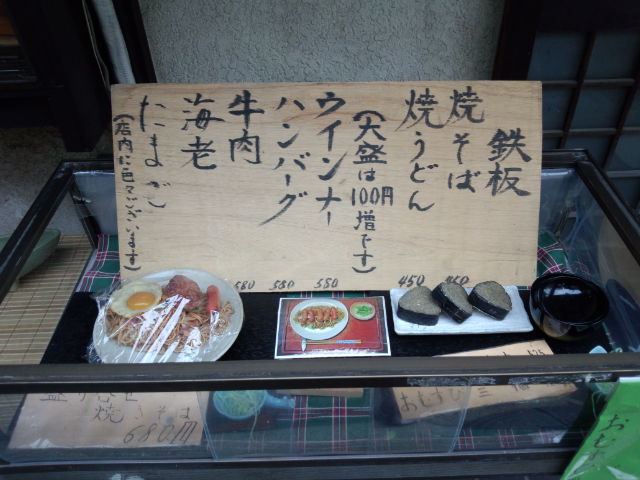 鉄板
焼そば
焼うどん
(大盛は100円増です)
ウインナー
ハンバーグ
牛肉
海老
たまご
(店内に色々ございます)
580
580
550
450
焼きそば
680円
おむすび
125